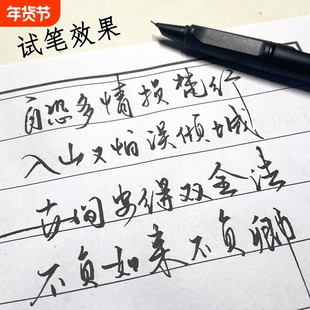 年货节
试笔效果
自恐多情损梵行
入山又怕误倾城
世间安得双全法
不负如来不负卿